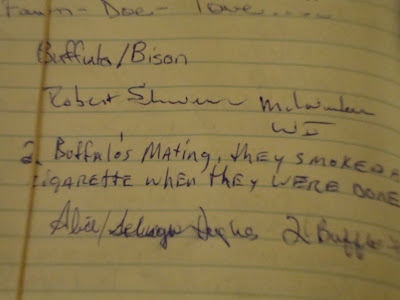 Fawn - Doe - love.....
Buffula/Bison
Robert Milwaukee
WI
2 Buffalo's Mating, they smoked a
cigarette when they were done
2 Buffalo